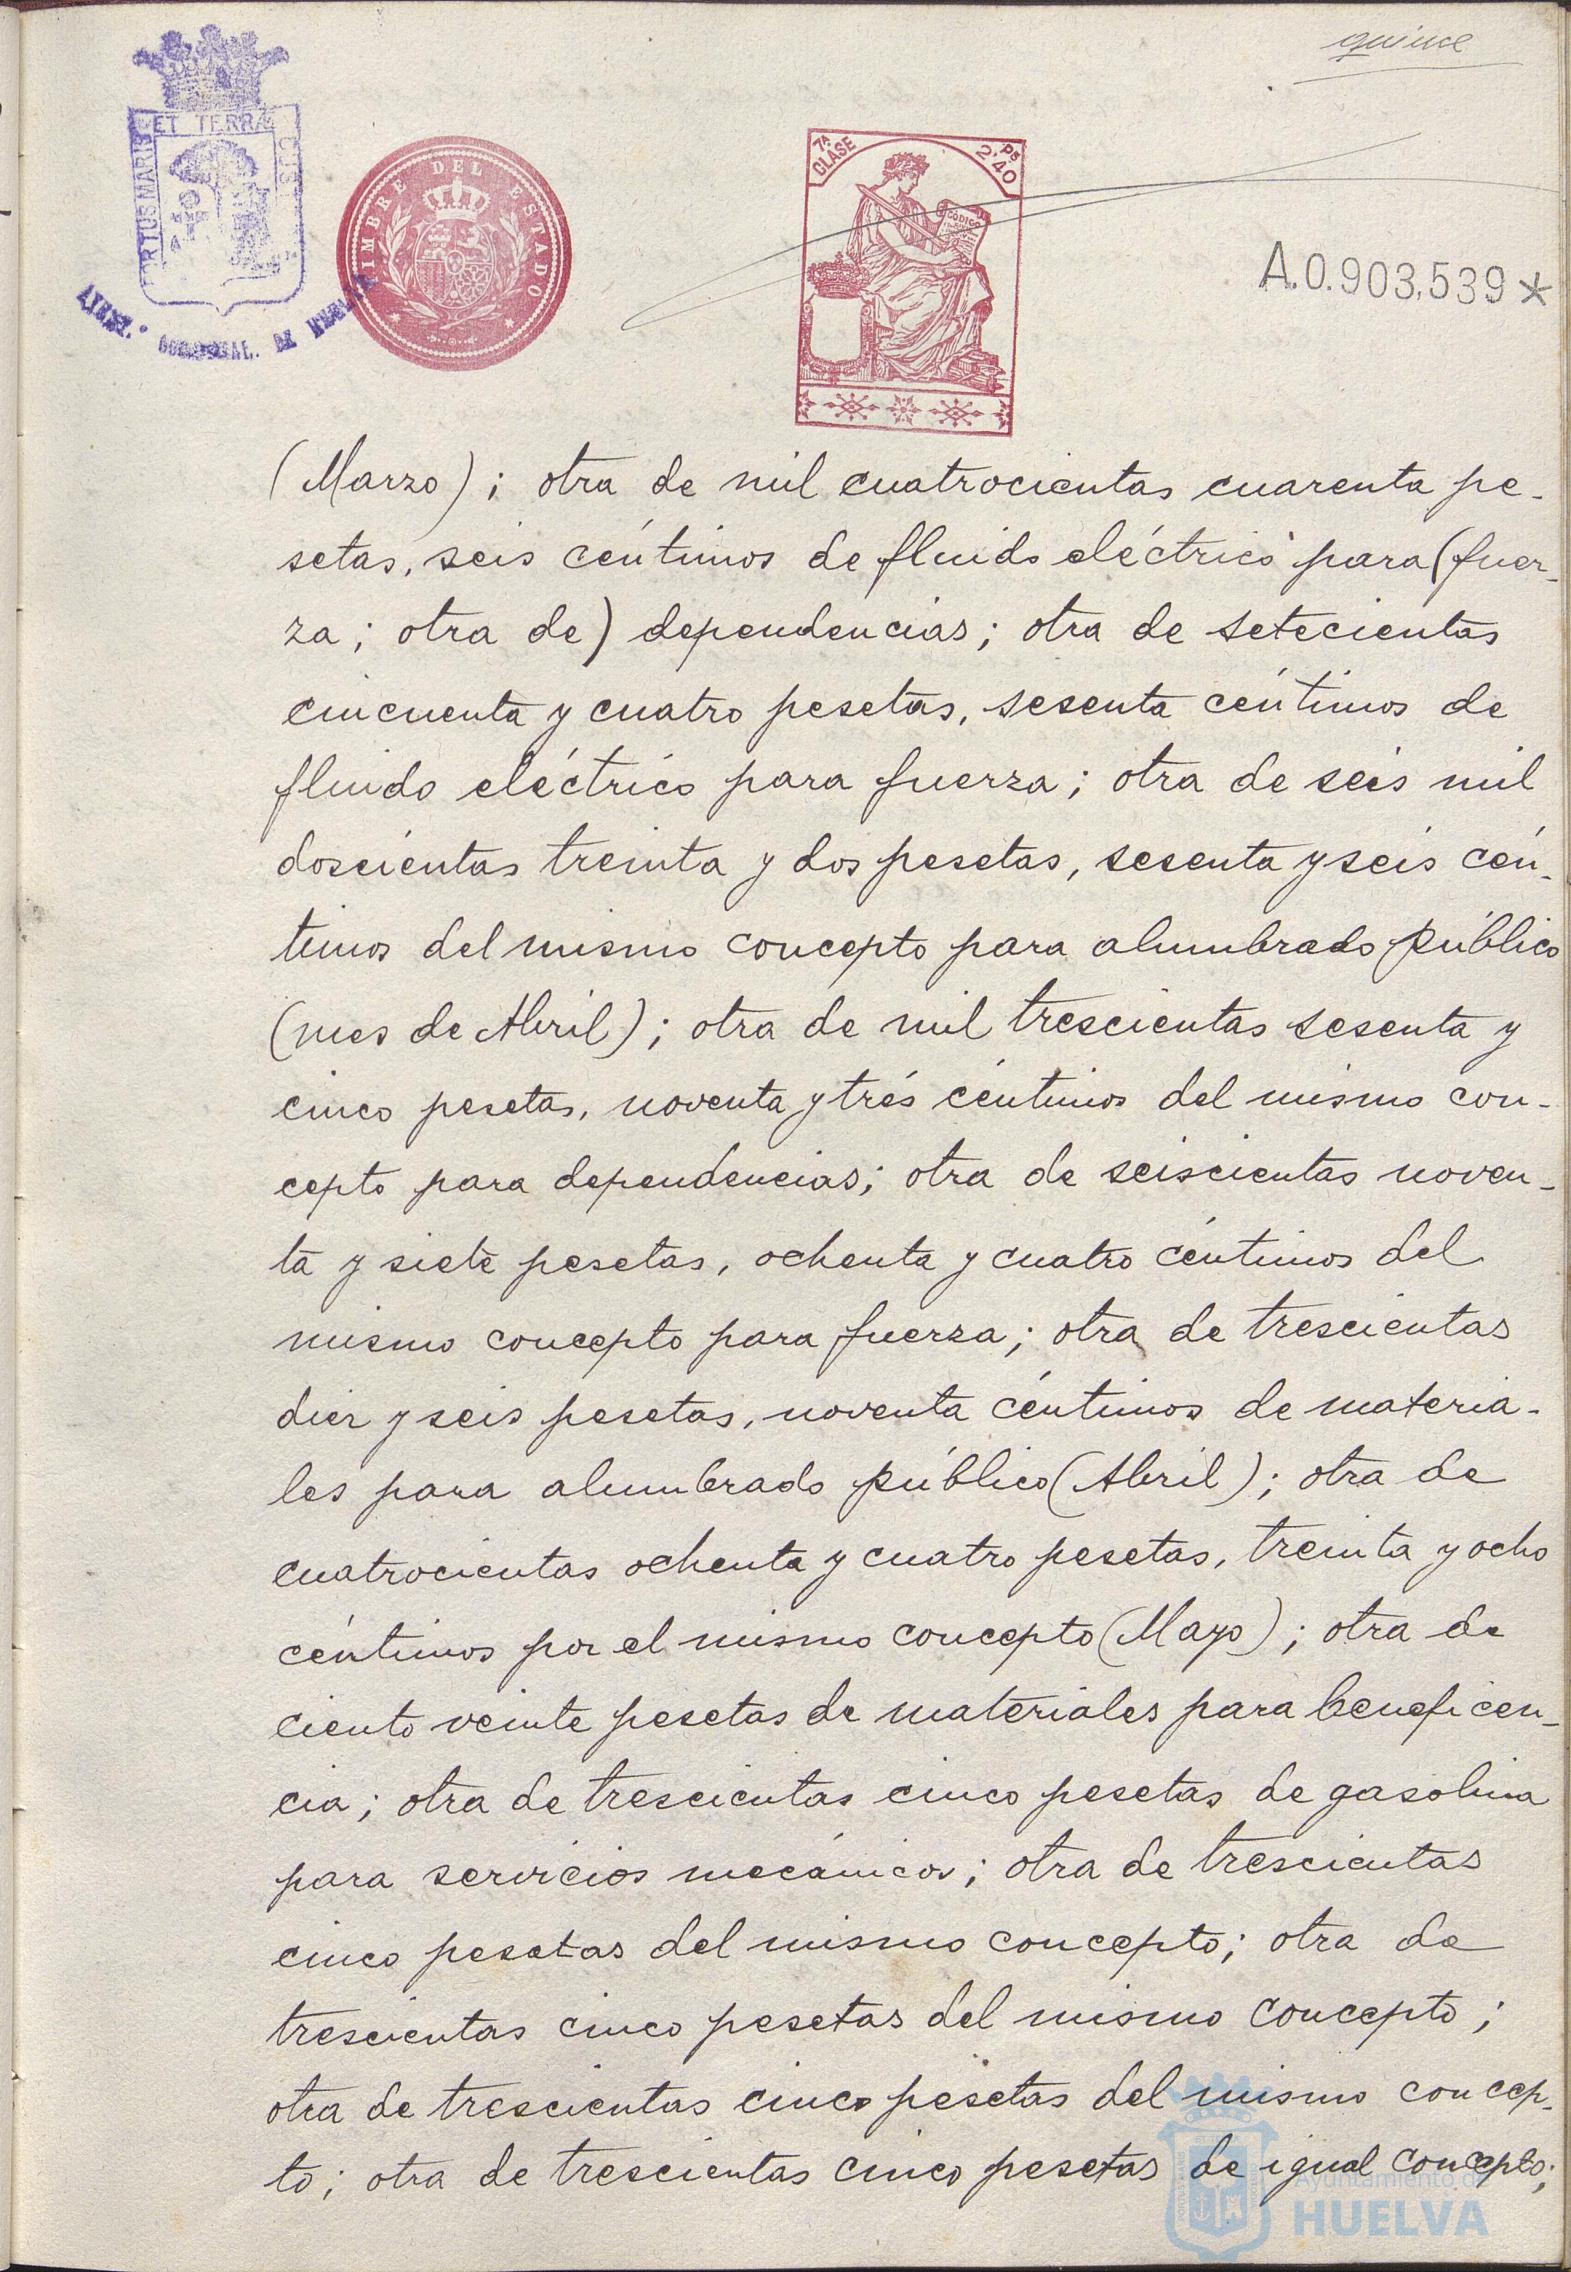 quince
ET TERRÆ
PORTUS MARIS
CUS
AYUNT.
DE HUELVA
TIMBRE DEL ESTADO
7ª CLASE
Ps 2'40
CÓDIGO
A.0.903,539*
(Marzo); otra de mil cuatrocientas cuarenta pe-
setas, seis céntimos de fluido eléctrico para (fuer-
za; otra de) dependencias; otra de setecientas
cincuenta y cuatro pesetas, sesenta céntimos de
fluido eléctrico para fuerza; otra de seis mil
doscientas treinta y dos pesetas, sesenta y seis cén-
timos del mismo concepto para alumbrado público
(mes de Abril); otra de mil trescientas sesenta y
cinco pesetas, noventa y trés céntimos del mismo con-
cepto para dependencias; otra de seiscientas noven-
ta y siete pesetas, ochenta y cuatro céntimos del
mismo concepto para fuerza; otra de trescientas
diez y seis pesetas, noventa céntimos de materia-
les para alumbrado público (Abril); otra de
cuatrocientas ochenta y cuatro pesetas, treinta y ocho
céntimos por el mismo concepto (Mayo); otra de
ciento veinte pesetas de materiales para beneficen-
cia; otra de trescientas cinco pesetas de gasolina
para servicios mecánicos; otra de trescientas
cinco pesetas del mismo concepto; otra de
trescientas cinco pesetas del mismo concepto;
otra de trescientas cinco pesetas del mismo concep-
to; otra de trescientas cinco pesetas de igual concepto;
Ayuntamiento de
HUELVA